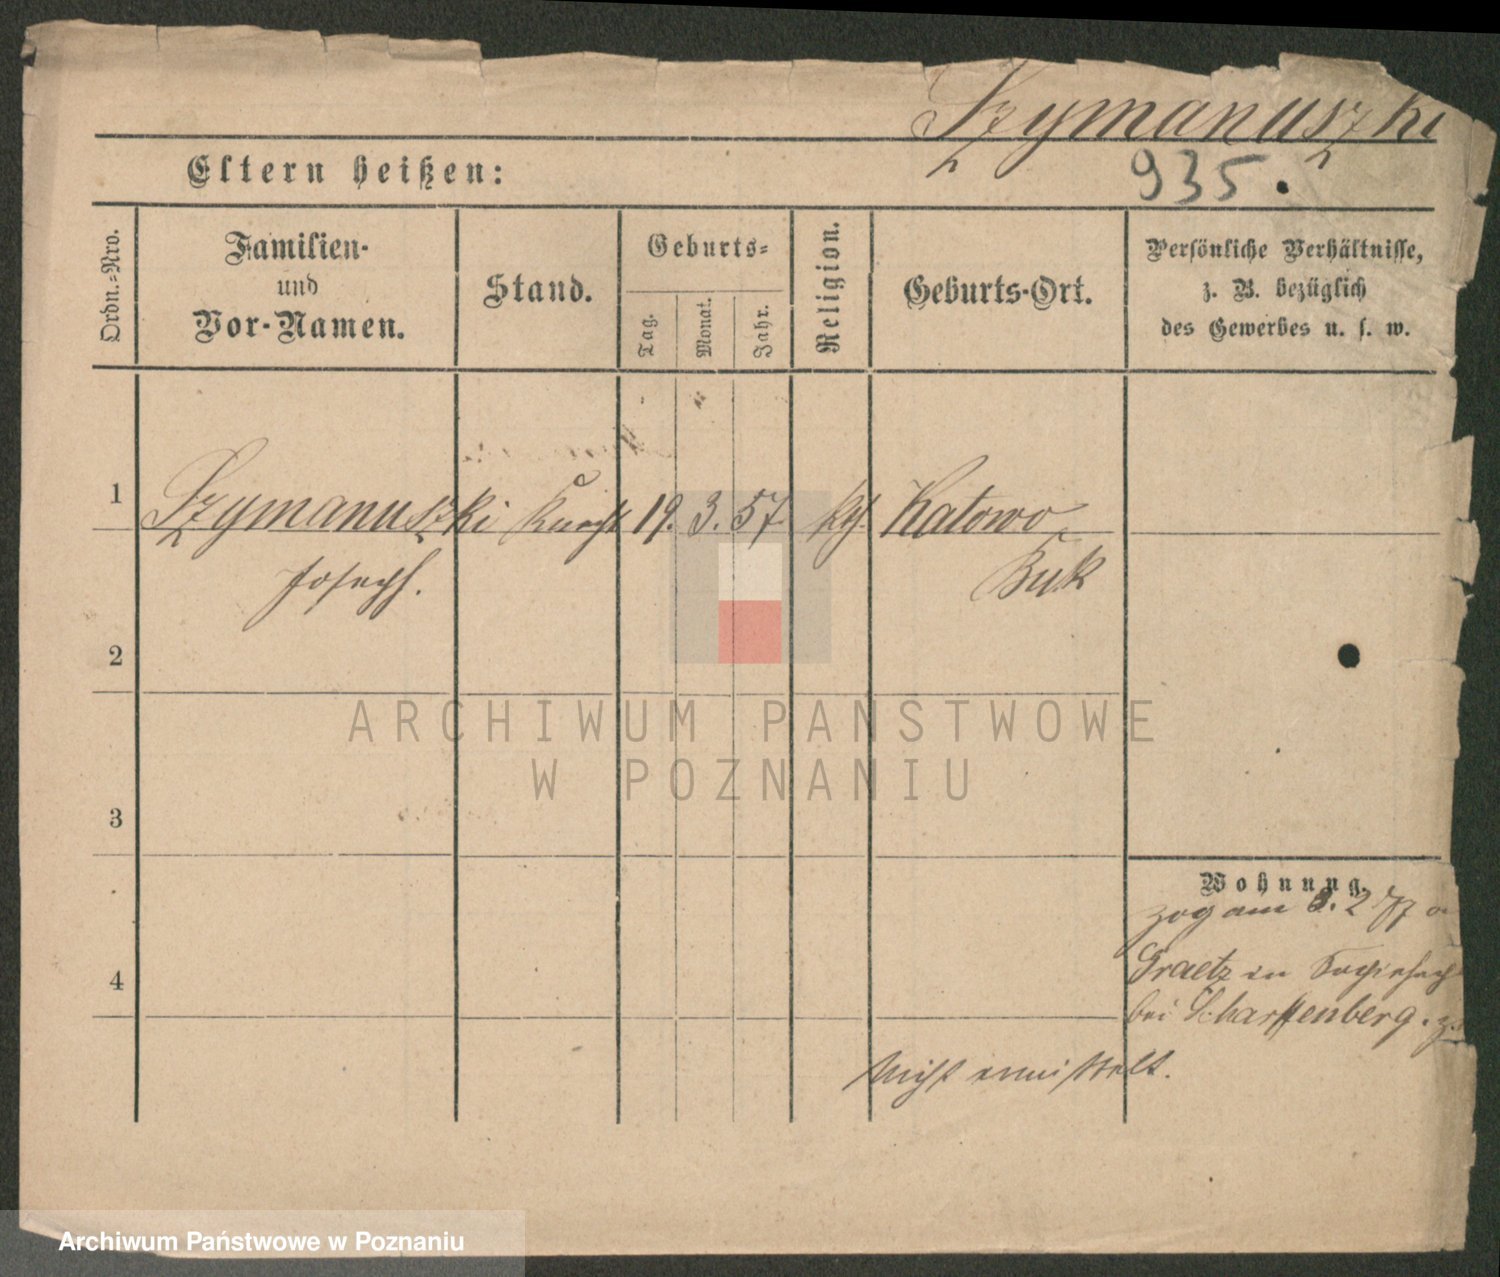 Szymanuszki
Eltern heißen:
935.
Ordn.-Nro.
Familien-
und
Vor-Namen.
Stand.
Geburts-
Tag.
Monat.
Jahr.
Religion.
Geburts-Ort.
Persönliche Verhältnisse,
z. B. bezüglich
des Gewerbes u. s. w.
1 Szymanuszki Knecht 19. 3. 57. kth. Katowo
Joseph. Buk
2
3
4
Wohnung.
zog am 2 77
Graetz in
bei Scharffenberg.
Nicht ermittelt.
ARCHIWUM PAŃSTWOWE
W POZNANIU
Archiwum Państwowe w Poznaniu